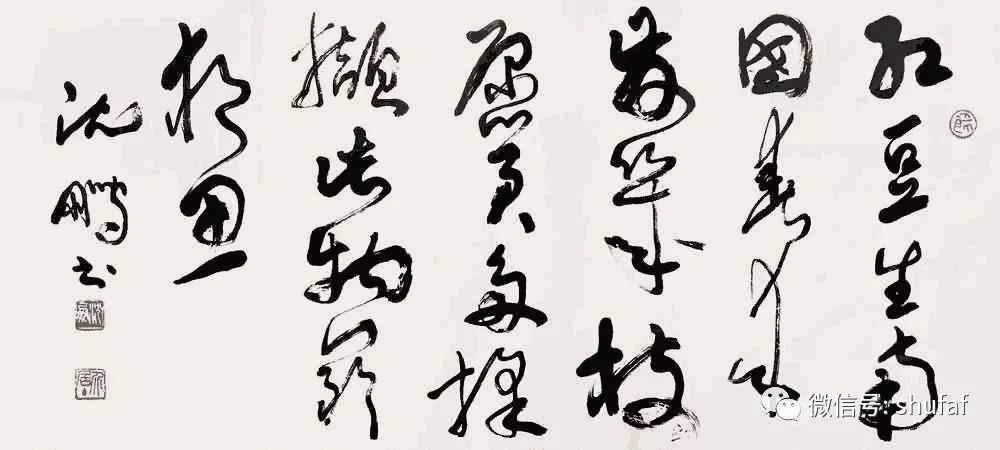 红豆生南
國春来
发幾枝
愿君多採
撷此物最
相思
沈鹏书
微信号: shufaf